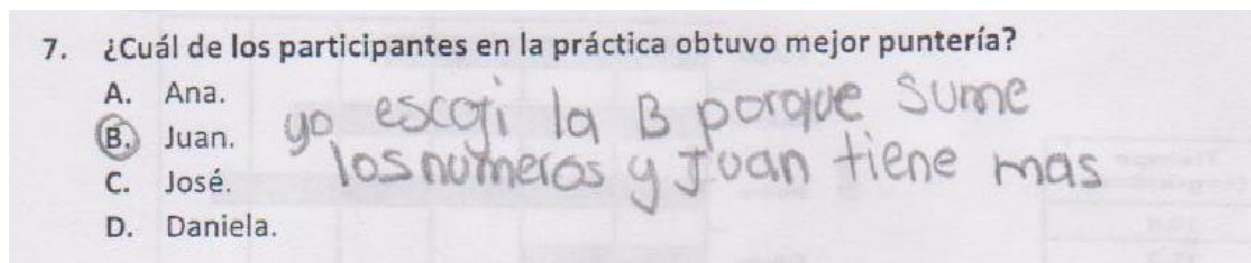 7. ¿Cuál de los participantes en la práctica obtuvo mejor puntería?
A. Ana.
B. Juan.
C. José.
D. Daniela.
yo escoji la B porque sume
los numeros y Juan tiene mas